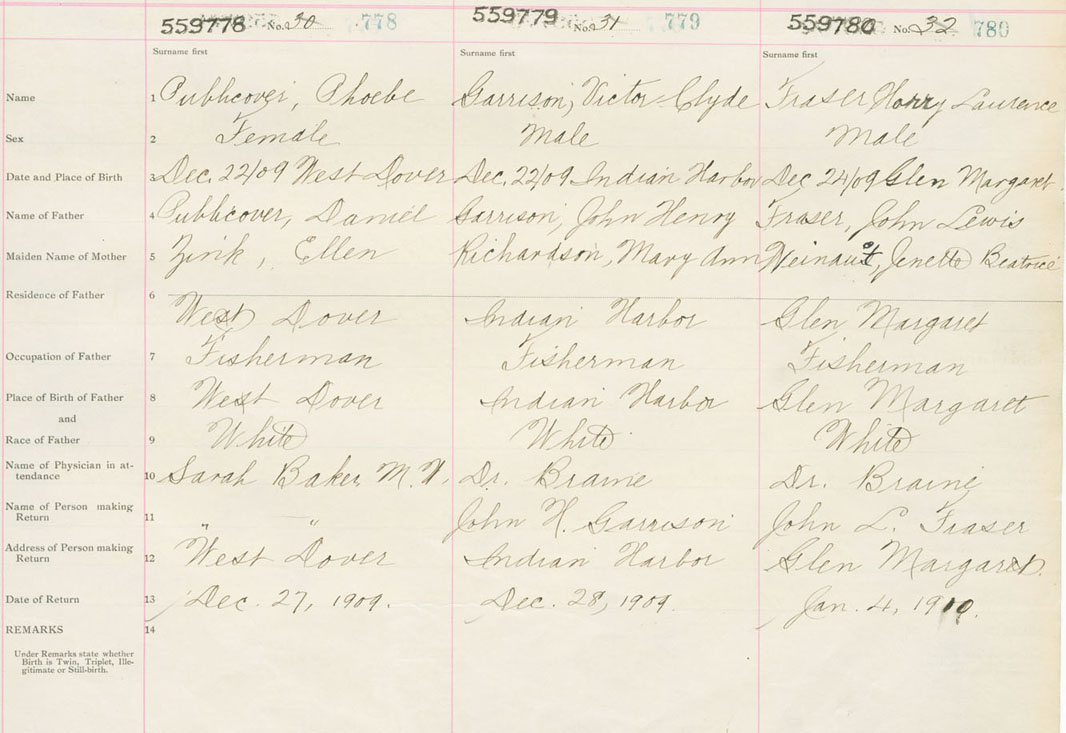 559778 No. 30 778 559779 No. 31 779 559780 No. 32 780
Surname first Surname first Surname first
Name 1 Publicover, Phoebe Garrison, Victor Clyde Fraser Harry Laurence
Sex 2 Female Male Male
Date and Place of Birth 3 Dec. 22/09 West Dover Dec. 22/09 Indian Harbor Dec 24/09 Glen Margaret
Name of Father 4 Publicover, Daniel Garrison, John Henry Fraser, John Lewis
Maiden Name of Mother 5 Zink, Ellen Richardson, Mary Ann Jenette Beatrice
Residence of Father 6
West Dover Indian Harbor Glen Margaret
Occupation of Father 7 Fisherman Fisherman Fisherman
Place of Birth of Father 8 West Dover Indian Harbor Glen Margaret
and
Race of Father 9 White White White
Name of Physician in at-
tendance 10 Sarah Baker M.W. Dr. Braine Dr. Braine
Name of Person making
Return 11 " — " John H. Garrison John L. Fraser
Address of Person making
Return 12 West Dover Indian Harbor Glen Margaret.
Date of Return 13 Dec. 27, 1909. Dec. 28, 1909. Jan. 4, 1910.
REMARKS 14
Under Remarks state whether
Birth is Twin, Triplet, Ille-
gitimate or Still-birth.